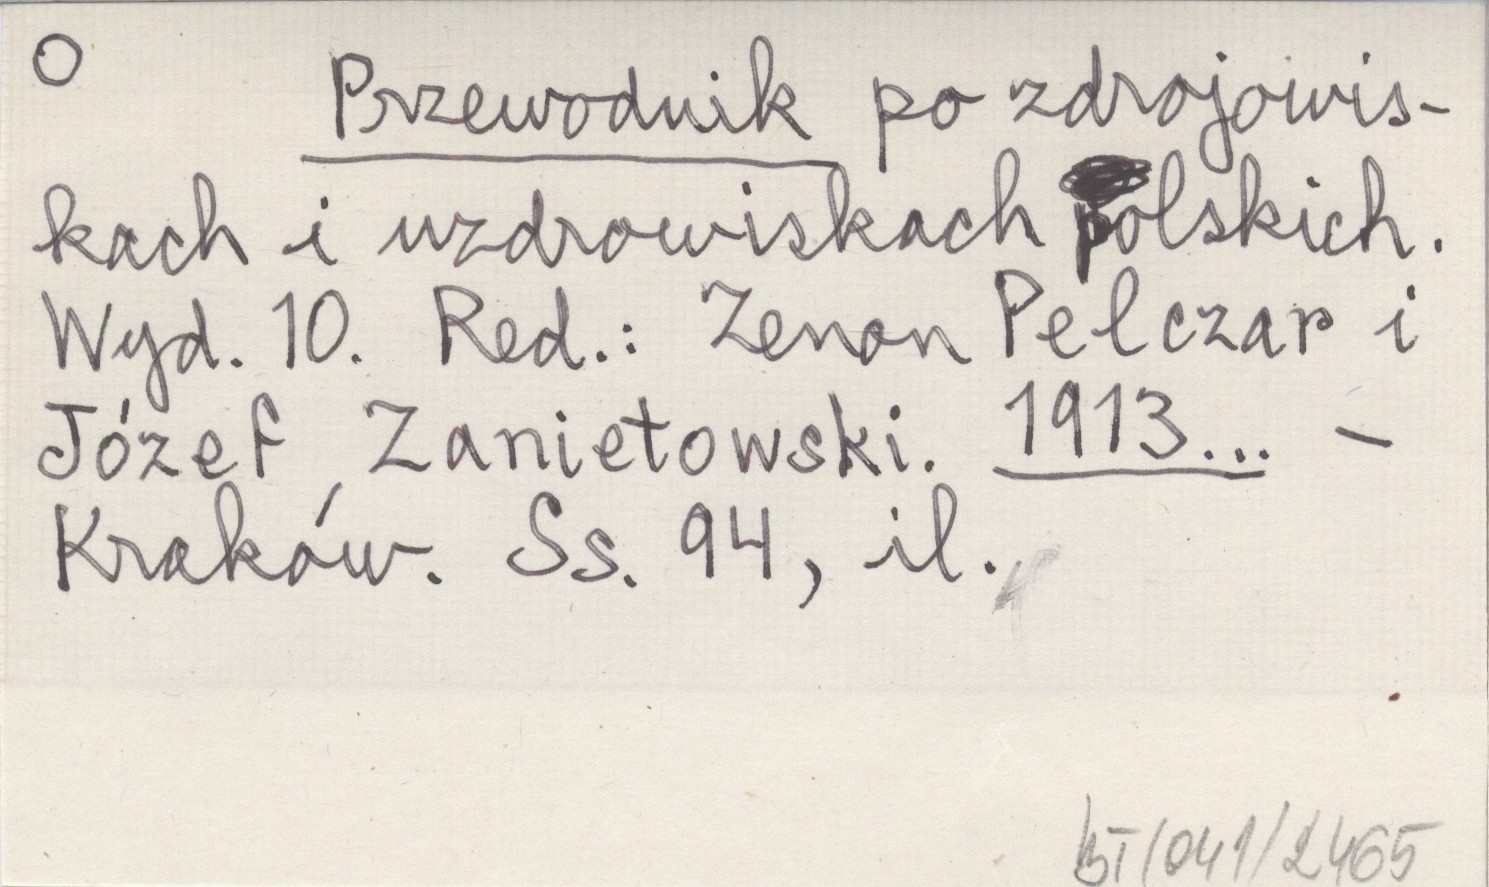 O Przewodnik po zdrojowis-
kach i uzdrowiskach polskich.
Wyd. 10. Red.: Zenon Pelczar i
Józef Zanietowski. 1913... -
Kraków. Ss. 94, il.
BT/041/2465